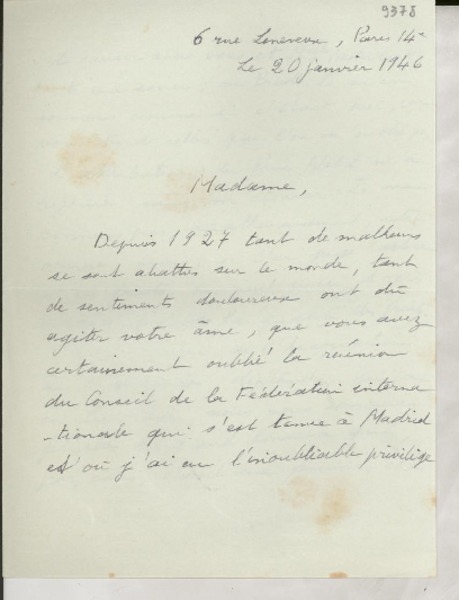 9378
6 rue Leneveux, Paris 14e
Le 20 janvier 1946
Madame,
Depuis 1927 tant de malheurs
se sont abattus sur le monde, tant
de sentiments douloureux ont dû
agiter votre âme, que vous avez
certainement oublié la réunion
du Conseil de la Fédération interna
-tionale qui s'est tenue à Madrid
et où j'ai eu l'inoubliable privilège